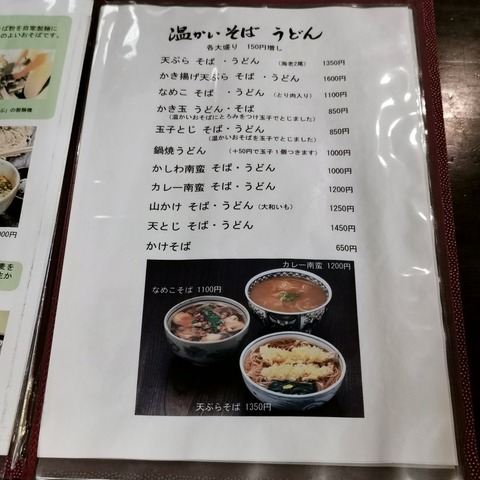 温かい そば うどん
各大盛り 150円増し
天ぷら そば ・うどん (海老2尾) 1350円
かき揚げ天ぷら そば ・うどん 1600円
なめこ そば ・うどん (とり肉入り) 1100円
かき玉 うどん・そば 850円
(温かいおそばにとろみをつけ玉子でとじました)
玉子とじ そば・うどん 850円
(温かいおそばを玉子でとじました)
鍋焼うどん (+50円で玉子1個つきます) 1000円
かしわ南蛮 そば・うどん 1000円
カレー南蛮 そば・うどん 1200円
山かけ そば・うどん (大和いも) 1250円
天とじ そば・うどん 1450円
かけそば 650円
カレー南蛮 1200円
なめこそば 1100円
天ぷらそば 1350円
そば粉を自家製麺に
のよいおそばです。
」の製麺機
00円
麦を
とか